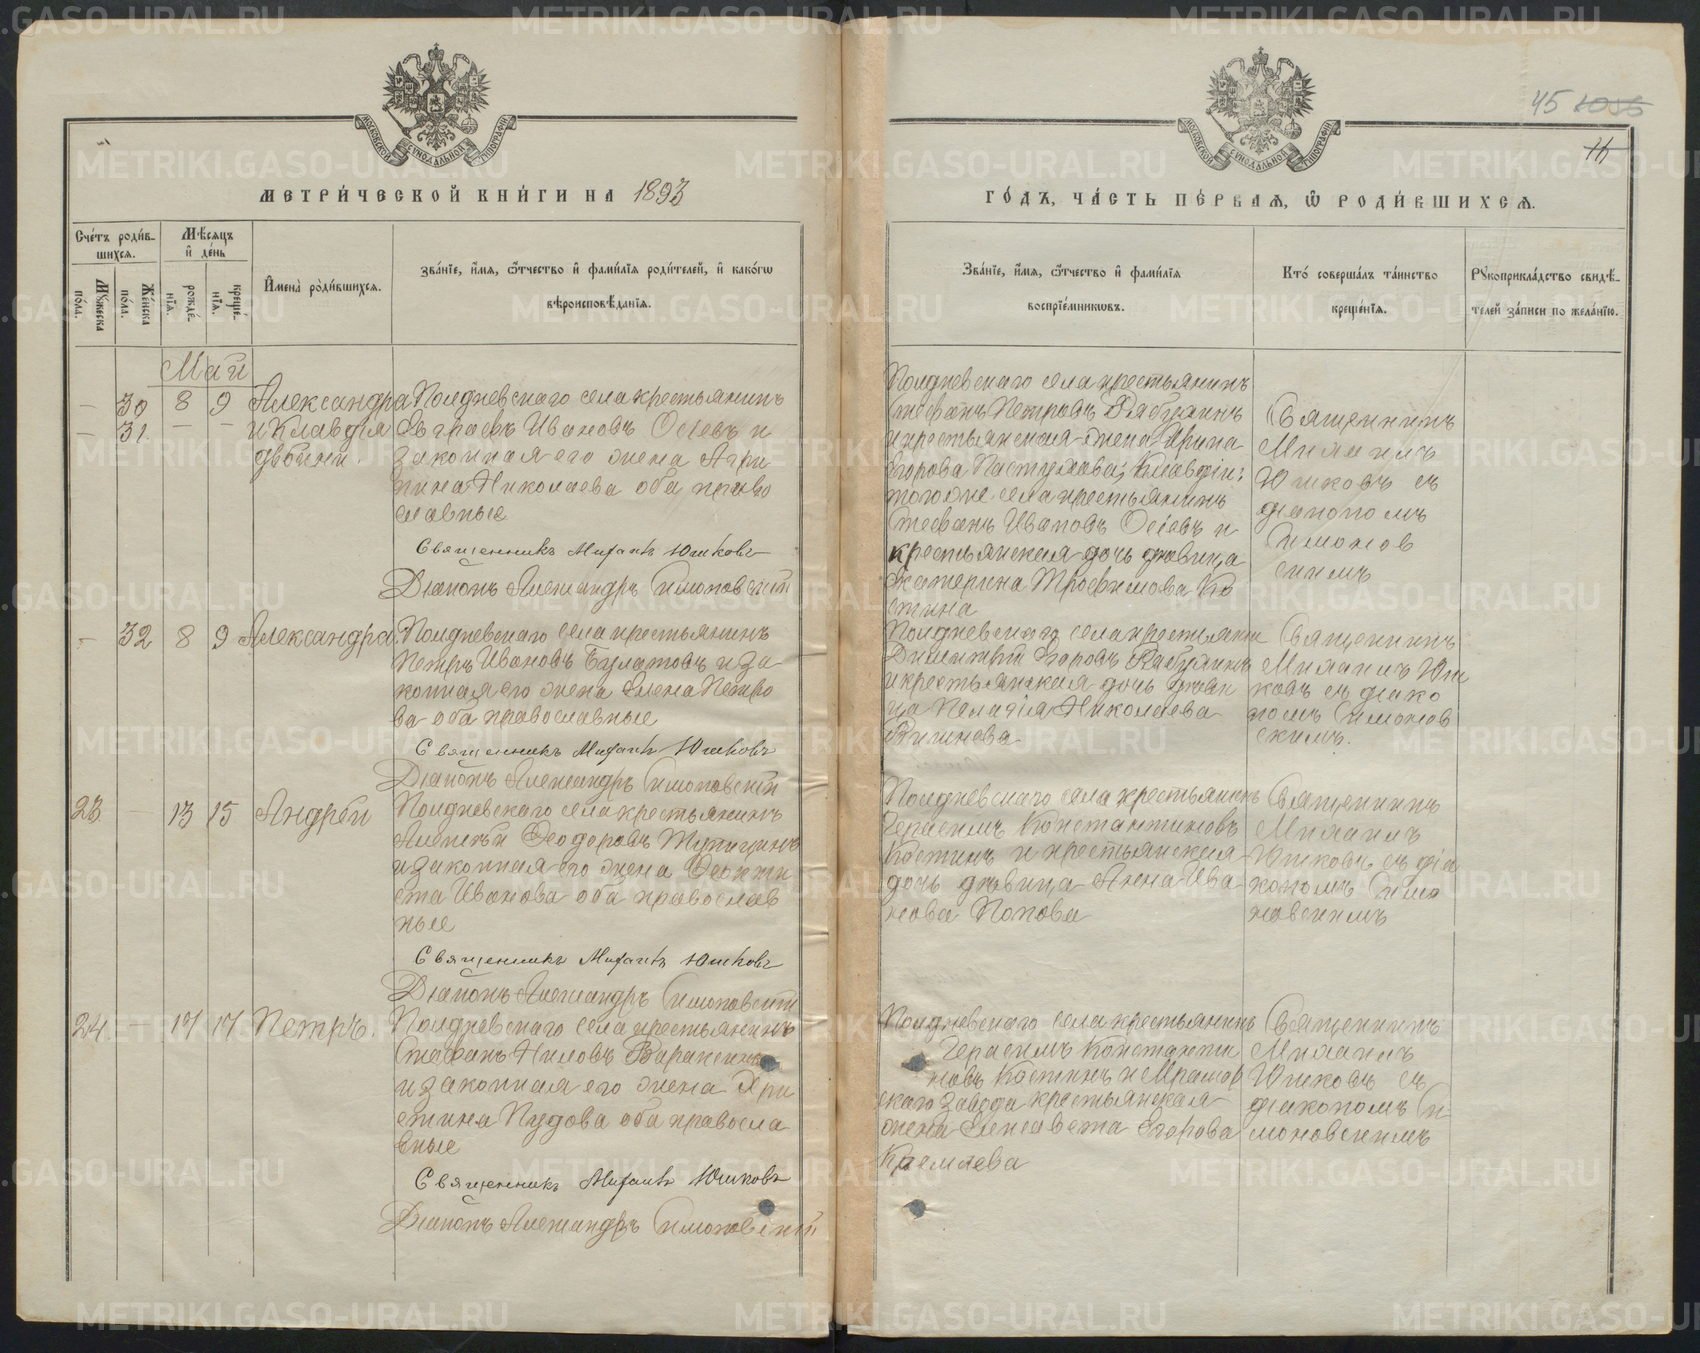 45
МЕТРИ́ЧЕСКОЙ КНИ́ГИ НА 1893
ГО́ДЪ, ЧА́СТЬ ПЕ́РВАЯ, Ѽ РОДИ́ВШИХСЯ.
Сче́тъ роди́в-
шихся.
Му́жеска по́ла.
Же́нска по́ла.
Мѣ́сяцъ и де́нь
рожде́нїя.
креще́нїя.
И́мена роди́вшихся.
Зва́нїе, и́мя, ѻ́тчество и фами́лїя роди́телей, и како́гѡ
вѣроисповѣ́данїя.
Зва́нїе, и́мя, ѻ́тчество и фами́лїя
воспрїе́мникѡвъ.
Кто́ соверша́лъ та́инство
креще́нїя.
Рꙋкоприкла́дство свидѣ́-
телей за́писи по жела́нїю.
Май
30 8 9 Александра
31 и Клавдія
двойни.
Полдневскаго села крестьянинъ
Евграфъ Ивановъ Осіевъ и
законная его жена Агри
пина Николаева оба право
славные
Священникъ Михаилъ Юшковъ
Діаконъ Александръ Симоновскій
Полдневскаго села крестьянинъ
Стефанъ Петровъ Бабушинъ
и крестьянская жена Ирина
Егорова Пастухова; Клавдіи:
того же села крестьянинъ
Стефанъ Ивановъ Осіевъ и
крестьянская дочь дѣвица
Екатерина Трофимова Ко
стина
Священникъ
Михаилъ
Юшковъ съ
діакономъ
Симонов
скимъ
32 8 9 Александра
Полдневскаго села крестьянинъ
Петръ Ивановъ Булатовъ и за
конная его жена Елена Петро
ва оба православные
Священникъ Михаилъ Юшковъ
Діаконъ Александръ Симоновскій
Полдневскаго села крестьянинъ
Димитрій Егоровъ Бабушинъ
и крестьянская дочь дѣви
ца Пелагія Николаева
Священникъ
Михаилъ Юш
ковъ съ діако
номъ Симонов
скимъ.
23 13 15 Андрей
Полдневскаго села крестьянинъ
Алексѣй Ѳеодоровъ
и законная его жена Ѳеокти
ста Иванова оба православ
ные
Священникъ Михаилъ Юшковъ
Діаконъ Александръ Симоновскій
Полдневскаго села крестьянинъ
Герасимъ Константиновъ
Костинъ и крестьянская
дочь дѣвица Анна Ива
нова Попова
Священникъ
Михаилъ
Юшковъ съ діа
кономъ Симо
новскимъ
24 17 17 Петръ.
Полдневскаго села крестьянинъ
Стефанъ Ниловъ
и законная его жена Хри
стина Пудова оба правосла
вные
Священникъ Михаилъ Юшковъ
Діаконъ Александръ Симоновскій
Полдневскаго села крестьянинъ
Герасимъ Константи
новъ Костинъ и Мрамор
скаго завода крестьянская
жена Елисавета Егорова
Кремлева
Священникъ
Михаилъ
Юшковъ съ
діакономъ Си
моновскимъ